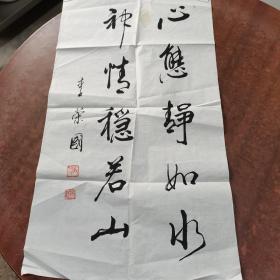 心態靜如水
神情穩若山
李榮國